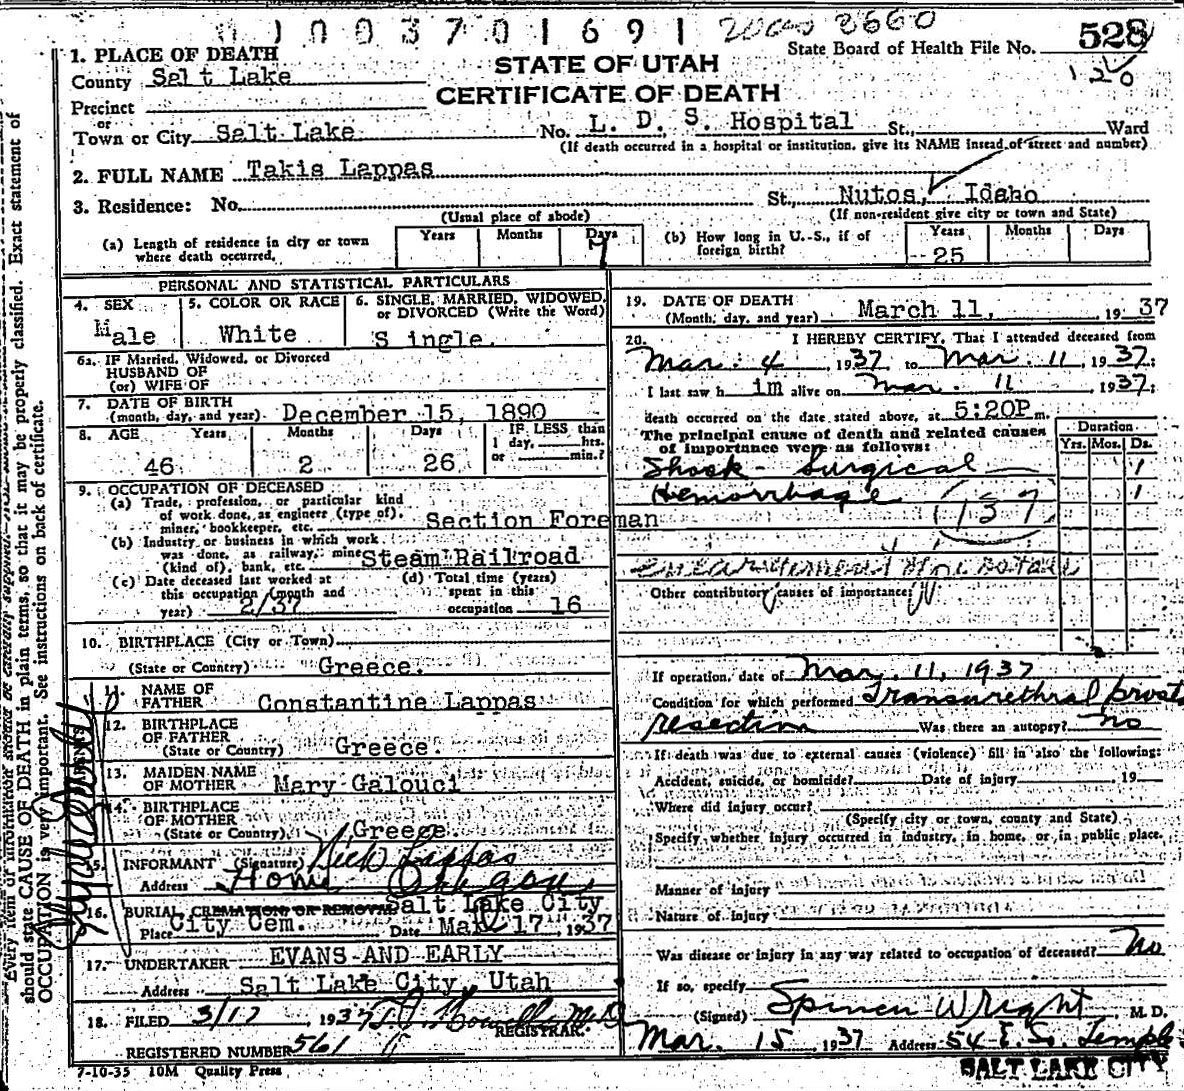 0 1 0 0 3 7 0 1 6 9 1
State Board of Health File No. 528
120
1. PLACE OF DEATH
STATE OF UTAH
CERTIFICATE OF DEATH
County Salt Lake
Precinct
or
Town or City Salt Lake No. L. D. S. Hospital St., Ward
(If death occurred in a hospital or institution, give its NAME instead of street and number)
2. FULL NAME Takis Lappas
3. Residence: No. St., Nutos, Idaho
(Usual place of abode) (If non-resident give city or town and State)
(a) Length of residence in city or town where death occurred. Years Months Days 7
(b) How long in U.-S., if of foreign birth? Years 25 Months Days
PERSONAL AND STATISTICAL PARTICULARS
4. SEX Male
5. COLOR OR RACE White
6. SINGLE, MARRIED, WIDOWED, or DIVORCED (Write the Word) S ingle.
6a. IF Married, Widowed, or Divorced
HUSBAND OF
(or) WIFE OF
7. DATE OF BIRTH
(month, day, and year) December 15, 1890
8. AGE Years Months Days IF LESS than
1 day, hrs.
or min.?
46 2 26
9. OCCUPATION OF DECEASED
(a) Trade, profession, or particular kind
of work done, as engineer (type of),
miner, bookkeeper, etc. Section Foreman
(b) Industry or business in which work
was done, as railway, mine
(kind of), bank, etc. Steam Railroad
(c) Date deceased last worked at
this occupation (month and
year) 2/37
(d) Total time (years)
spent in this
occupation 16
10. BIRTHPLACE (City or Town)
(State or Country) Greece.
11. NAME OF
FATHER Constantine Lappas
12. BIRTHPLACE
OF FATHER
(State or Country) Greece.
13. MAIDEN NAME
OF MOTHER Mary Galouci
14. BIRTHPLACE
OF MOTHER
(State or Country) Greece.
15. INFORMANT (Signature) Nick Lappas
Address Home Oregon
16. BURIAL, CREMATION OR REMOVAL Salt Lake City
Place City Cem. Date Mar 17, 1937
17. UNDERTAKER EVANS AND EARLY
Address Salt Lake City, Utah
18. FILED 3/17 1937
REGISTRAR.
REGISTERED NUMBER 561
7-10-35 10M Quality Press
19. DATE OF DEATH
(Month, day, and year) March 11, 1937
20. I HEREBY CERTIFY, That I attended deceased from
Mar. 4, 1937 to Mar. 11, 1937;
I last saw h im alive on Mar. 11 1937;
death occurred on the date stated above, at 5:20P m.
The principal cause of death and related causes
of importance were as follows:
Duration
Yrs. Mos. Ds.
Shock - Surgical 1
Hemorrhage 1
137
Other contributory causes of importance:
If operation, date of Mar. 11, 1937
Condition for which performed Transurethral prost
resection Was there an autopsy? no
If death was due to external causes (violence) fill in also the following:
Accident, suicide, or homicide? Date of injury 19
Where did injury occur?
(Specify city or town, county and State)
Specify whether injury occurred in industry, in home, or in public place.
Manner of injury
Nature of injury
Was disease or injury in any way related to occupation of deceased? No
If so, specify
(Signed) Spencer Wright, M. D.
Mar. 15 1937 Address 54 E. So. Temple
SALT LAKE CITY
should state CAUSE OF DEATH in plain terms, so that it may be properly classified. Exact statement of
OCCUPATION is very important. See instructions on back of certificate.